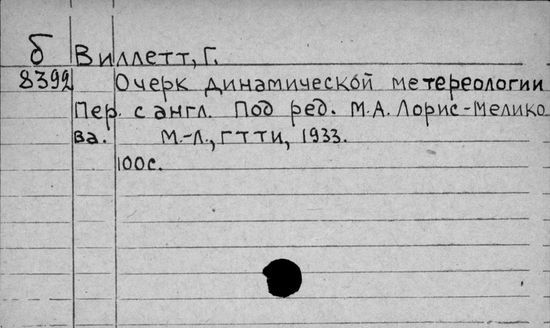 б Виллетт, Г.
8392 Очерк динамической метереологии
Пер. с англ. Под ред. М.А. Лорис-Мелико
ва. М.-Л., ГТТИ, 1933.
100с.